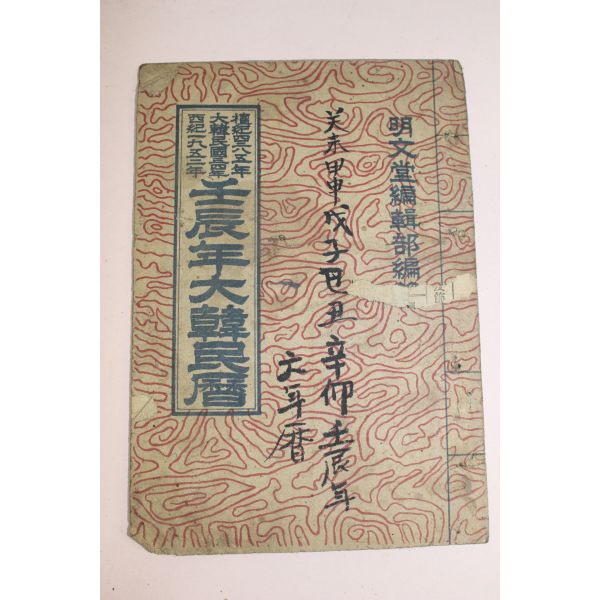 明文堂編輯部編
癸未甲申戊子己丑辛卯壬辰年
六年曆
檀紀四二八五年
大韓民國三四年
西紀一九五二年
壬辰年大韓民曆